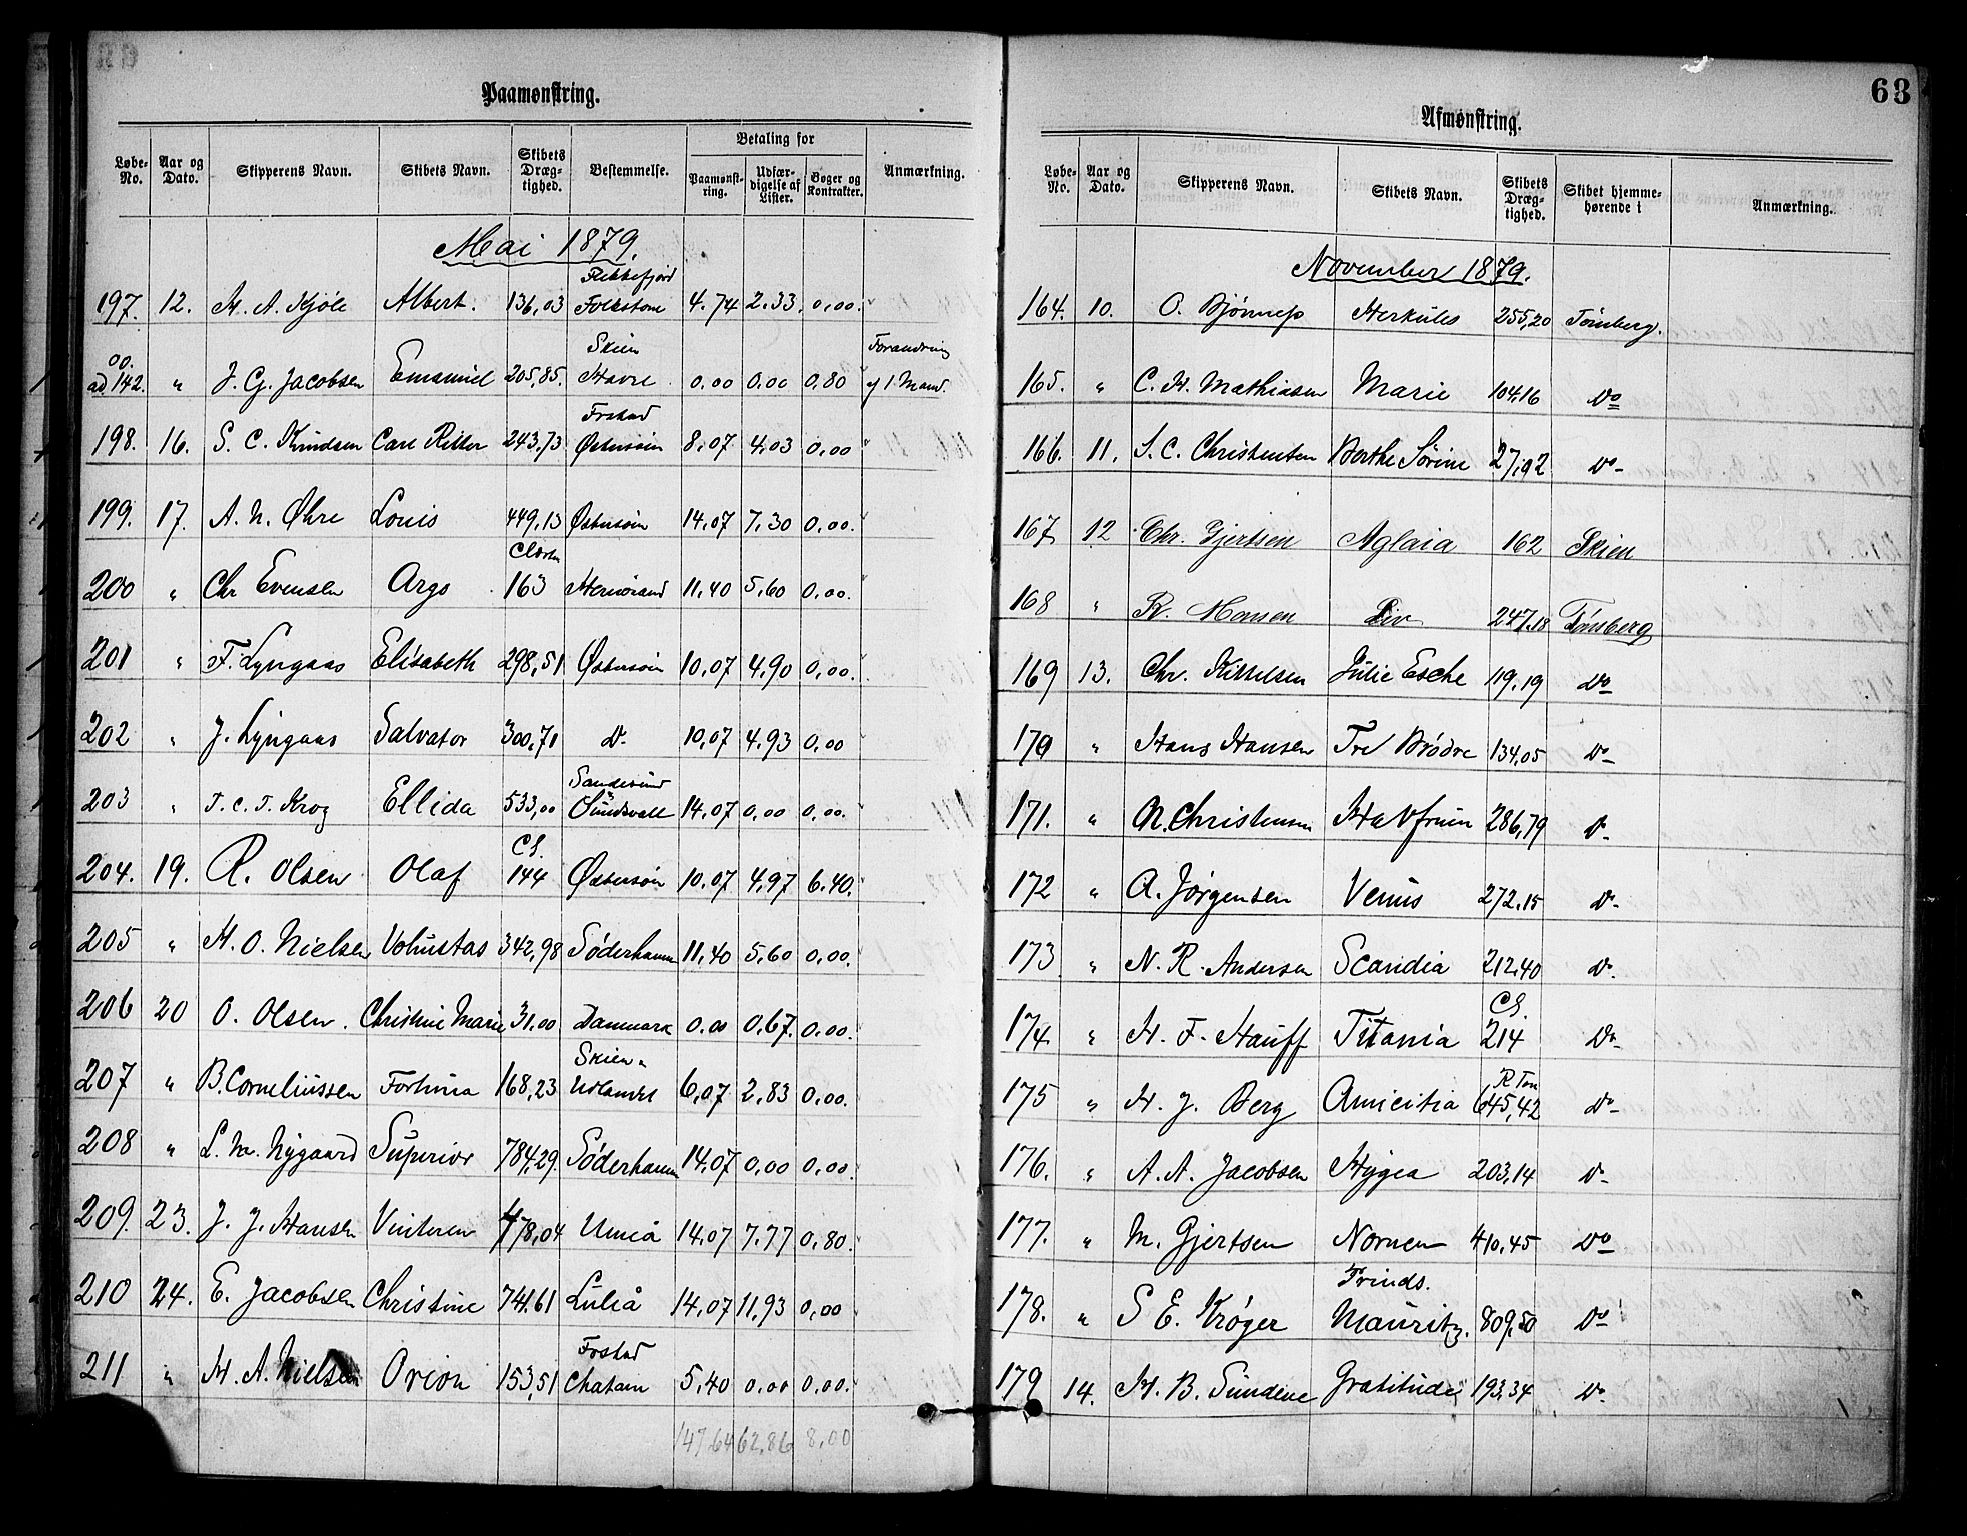 68
Paamønstring.
Løbe-No. Aar og Dato. Skipperens Navn. Skibets Navn. Skibets Dræg-tighed. Bestemmelse. Betaling for Paamønst-ring. Udfær-digelse af Lister. Bøger og Kontrakter. Anmærkning.
Mai 1879.
197. 12. H. A. Kjöle Albert. 136,03 Flekkefjord Folkstone 4.74 2.33 0,00. "
ad 142. " J. G. Jacobsen Emanuel 205,85. Skien Havre 0.00 0.00 0,80 Forandring af 1 Mand.
198. 16. S. C. Knudsen Carl Ritter 243,73 Frstad Østersöin 8,07 4,03 0,00 "
199. 17. A. N. Øhre Louis 449,13 Østersöin 14.07 7,30 0,00. "
200 " Chr Evensen Argo 163 Hernösand 11,40 5,60 0,00. "
201 " F. Lyngaas Elisabeth 298,51 Østersöin 10,07 4,90 0,00. "
202 " J. Lyngaas Salvator 300,71 D. 10,07 4.93 0,00 "
203 " T. C. T. Krog Ellida 533,00 Sandesund Sundsvall 14,07 0,00 0,00. "
204. 19. R. Olsen Olaf C.L. 144 Østersöin 10,07 4,97 6,40. "
205 " H. O. Nielsen Volunstas 342,98 Söderhamn 11,40 5,60 0,00.
206 20 O. Olsen. Christine Marie 31,00 Danmark 0.00 0,67. 0,00.
207 " B. Corneliussen Fortuna 168,23 Skien " Udlandet 6,07 2,83 0,00.
208 " L. M. Nygaard Superior 784,29. Söderhamn 14,07 0,00 0,00.
209. 23. J. J. Hansen Vinteren 478,04 Umeå 14,07 7,77 0,80.
210 24. E. Jacobsen Christine 741.61 Luleå 14,07 11,93 0,00
211 " H. A. Nielsen Orion 153,51 Frstad Chatam 5,40 0,00 0,00.
147.64 62,86 8,00
Afmønstring.
Løbe-No. Aar og Dato. Skipperens Navn. Skibets Navn. Skibets Dræg-tighed. Skibet hjemme-hørende i Anmærkning.
November 1879.
164. 10. O. Bjönnes Herkules 255,20 Tönsberg.
165. " C. H. Mathiasen Marie 104,16 Do
166. 11. S. C. Christensen Berthe Sörine 27,92 Do
167 12 Chr. Gjertsen Aglaia 162 Skien
168 " Hansen Liv 247.18 Tönsberg
169 13. Chr. Kittelsen Julie Esche 119,19 Do
170 " Hans Hansen Tre Brödre 134,05 Do
171. " N. Christensen Havfruen 286,79 D.
172 " A. Jörgensen Venus 272.15 D.
173 " N. R. Andersen Scandia 212,40 D.
174 " H. F. Hauff Titania C.L. 214 Do
175 " H. J. Berg Amicitia R Ton 645,42 Do
176. " A. A. Jacobsen Hygea 203,14 D.
177. " M. Gjertsen Nornen 410,45 Do
178. " S. E. Kröger Prinds. Mauritz. 809,50 Do
179 14. H. B. Sundene Gratitude 193,34 Do